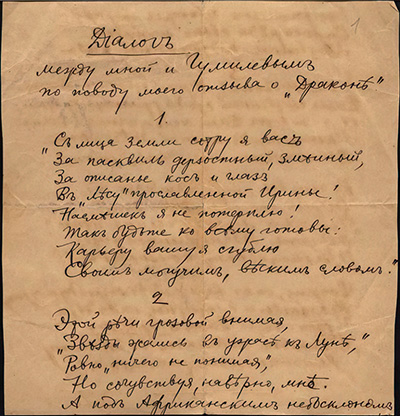 1
Діалогъ
между мной и Гумилевымъ
по поводу моего отзыва о „Драконѣ"
1.
"Съ лица земли сотру я васъ
За пасквиль дерзостный, змѣиный,
За описанье косъ и глазъ
Въ „Лѣсу" прославленной Ирины!
Насмѣшекъ я не потерплю!
Такъ будьте ко всему готовы:
Карьеру вашу я сгублю
Своимъ могучимъ, вѣскимъ словомъ."
2
Этой рѣчи грозовой внимая,
"Звѣзды жались въ ужасѣ къ Лунѣ,"
"Ровно „ничего не понимая",
Но сочувствуя, навѣрно, мнѣ.
А подъ Африканскимъ небосклономъ